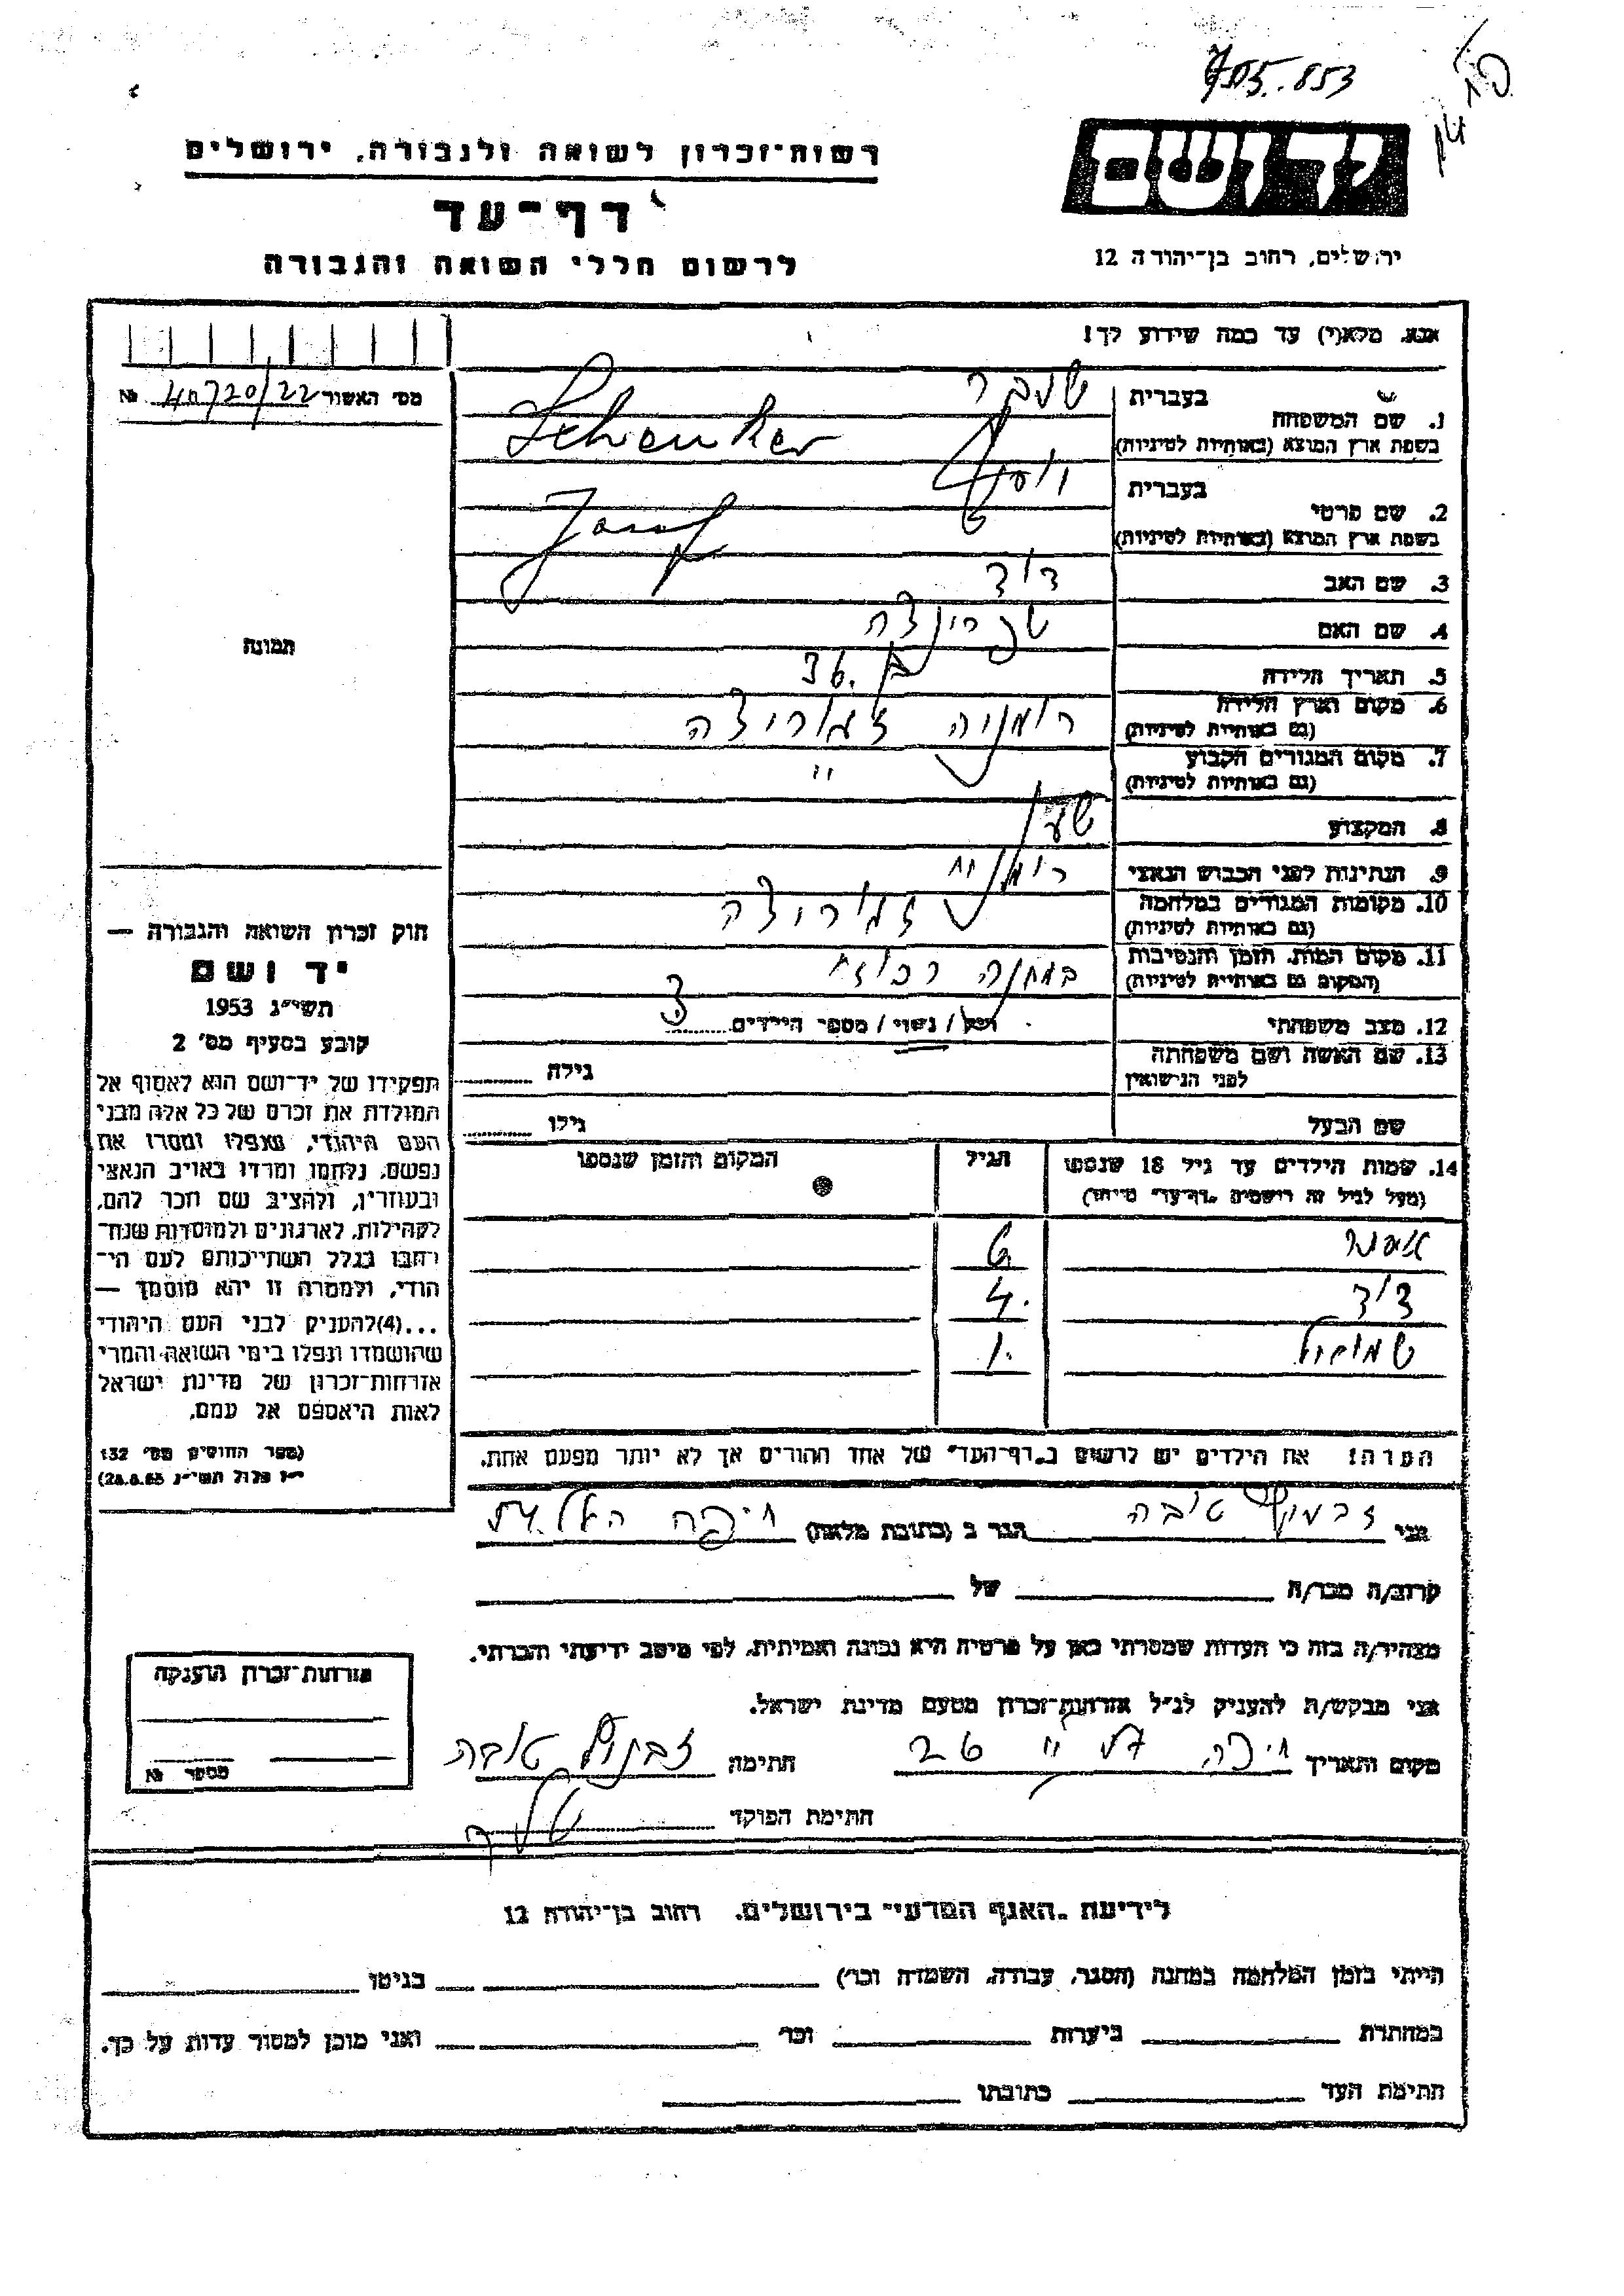 705.853
רשות-זכרון לשואה ולגבורה, ירושלים
יד ושם
דף-עד
לרשום חללי השואה והגבורה
ירושלים, רחוב בן-יהודה 12
אנא, מלא(י) עד כמה שידוע לך!
מס' האשור 40720/22 №
1. שם המשפחה בעברית שנקר
בשפת ארץ המוצא (באותיות לטיניות) Schenker
2. שם פרטי בעברית יוסף
בשפת ארץ המוצא (באותיות לטיניות) Josef
3. שם האב דוד
4. שם האם
5. תאריך הלידה בן 36
6. מקום וארץ הלידה (גם באותיות לטיניות) רומניה זגוריצה
7. מקום המגורים הקבוע (גם באותיות לטיניות) "
8. המקצוע שען
9. הנתינות לפני הכבוש הנאצי רומנית
10. מקומות המגורים במלחמה (גם באותיות לטיניות) זגוריצה
11. מקום המות, הזמן והנסיבות (המקום גם באותיות לטיניות) במחנה רכוז
12. מצב משפחתי רוק / נשוי / מספר הילדים 3
13. שם האשה ושם משפחתה לפני הנישואין גילה
שם הבעל גילו
14. שמות הילדים עד גיל 18 שנספו (מעל לגיל זה רושמים "דף-עד" מיוחד) הגיל המקום והזמן שנספו
אסתר 6
דוד 4.
שמואל 1.
הערה: את הילדים יש לרשום ב"דף-העד" של אחד ההורים אך לא יותר מפעם אחת.
תמונה
חוק זכרון השואה והגבורה —
יד ושם
תשי"ג 1953
קובע בסעיף מס' 2
תפקידו של יד-ושם הוא לאסוף אל
המולדת את זכרם של כל אלה מבני
העם היהודי, שנפלו ומסרו את
נפשם, נלחמו ומרדו באויב הנאצי
ובעוזריו, ולהציב שם וזכר להם,
לקהילות, לארגונים ולמוסדות שנח-
רבו בגלל השתייכותם לעם הי-
הודי, ולמטרה זו יהא מוסמך —
...(4) להעניק לבני העם היהודי
שהושמדו ונפלו בימי השואה והמרי
אזרחות-זכרון של מדינת ישראל
לאות היאספם אל עמם.
(ספר החוקים מס' 132
י"ז אלול תשי"ג
אני טובה הגר ב (כתובת מלאה) חיפה
קרוב/ה מכר/ה של
מצהיר/ה בזה כי העדות שמסרתי כאן על פרטיה היא נכונה ואמיתית, לפי מיטב ידיעתי והכרתי.
אני מבקש/ת להעניק לנ"ל אזרחות-זכרון מטעם מדינת ישראל.
מקום ותאריך חיפה חתימה טובה
חתימת הפוקד
אזרחות-זכרון הוענקה
מספר №
לידיעת "האגף המדעי" בירושלים, רחוב בן-יהודה 12
הייתי בזמן המלחמה במחנה (הסגר, עבודה, השמדה וכו') בגיטו
במחתרת ביערות וכו' ואני מוכן למסור עדות על כך.
חתימת העד כתובתו